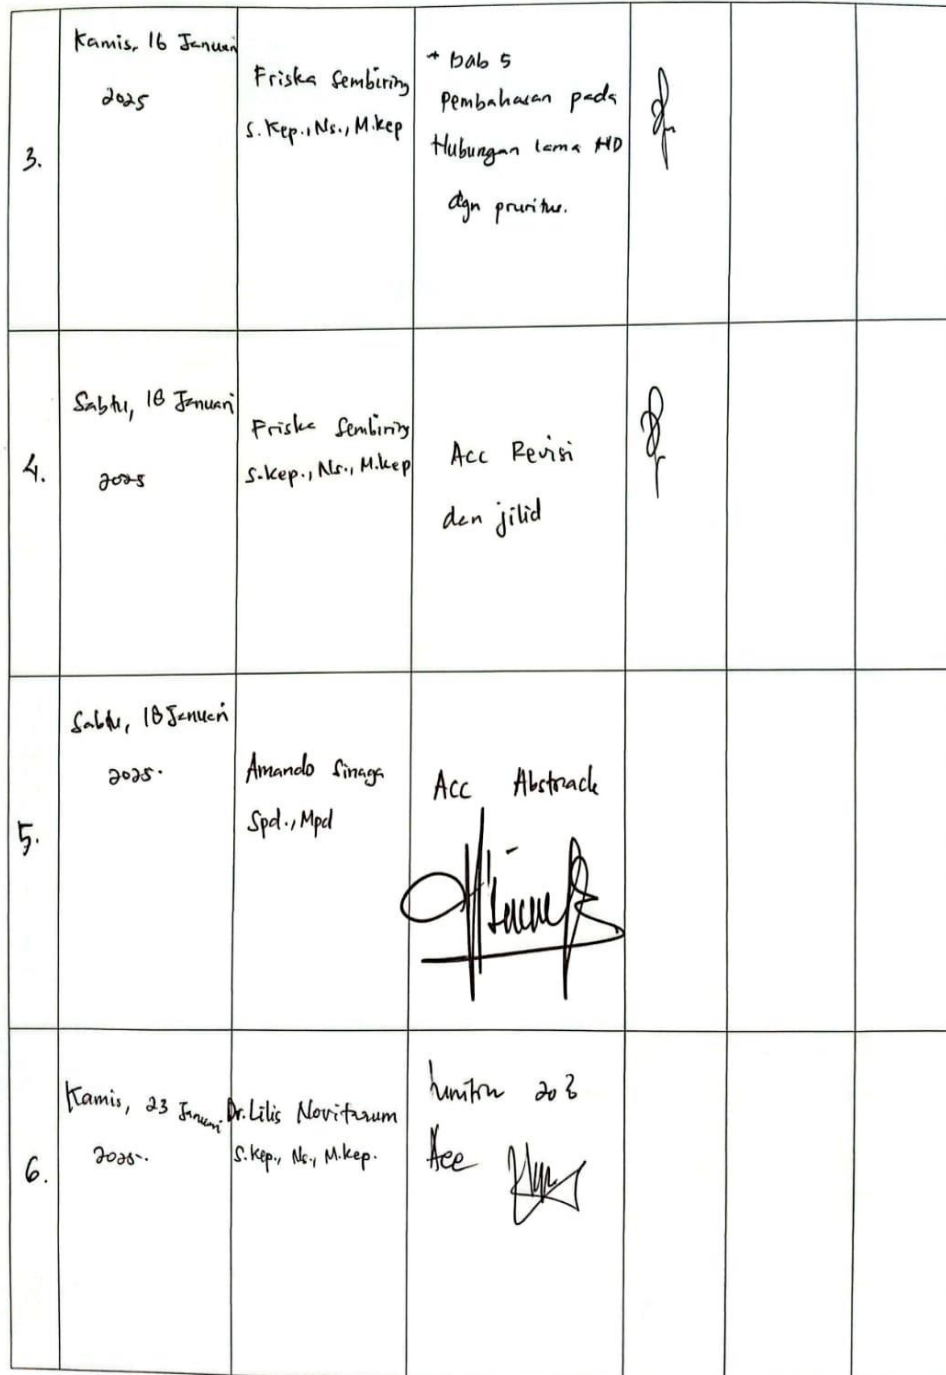 3.
Kamis, 16 Januari
2025
Friska Sembiring
S.Kep., Ns., M.Kep
* Bab 5
Pembahasan pada
Hubungan lama HD
dgn pruritus.
4.
Sabtu, 18 Januari
2025
Friska Sembiring
S.Kep., Ns., M.Kep
Acc Revisi
dan jilid
5.
Sabtu, 18 Januari
2025.
Amando Sinaga
Spd., Mpd
Acc Abstrack
6.
Kamis, 23 Januari
2025.
Dr. Lilis Novitarum
S.Kep., Ns., M.Kep.
Acc